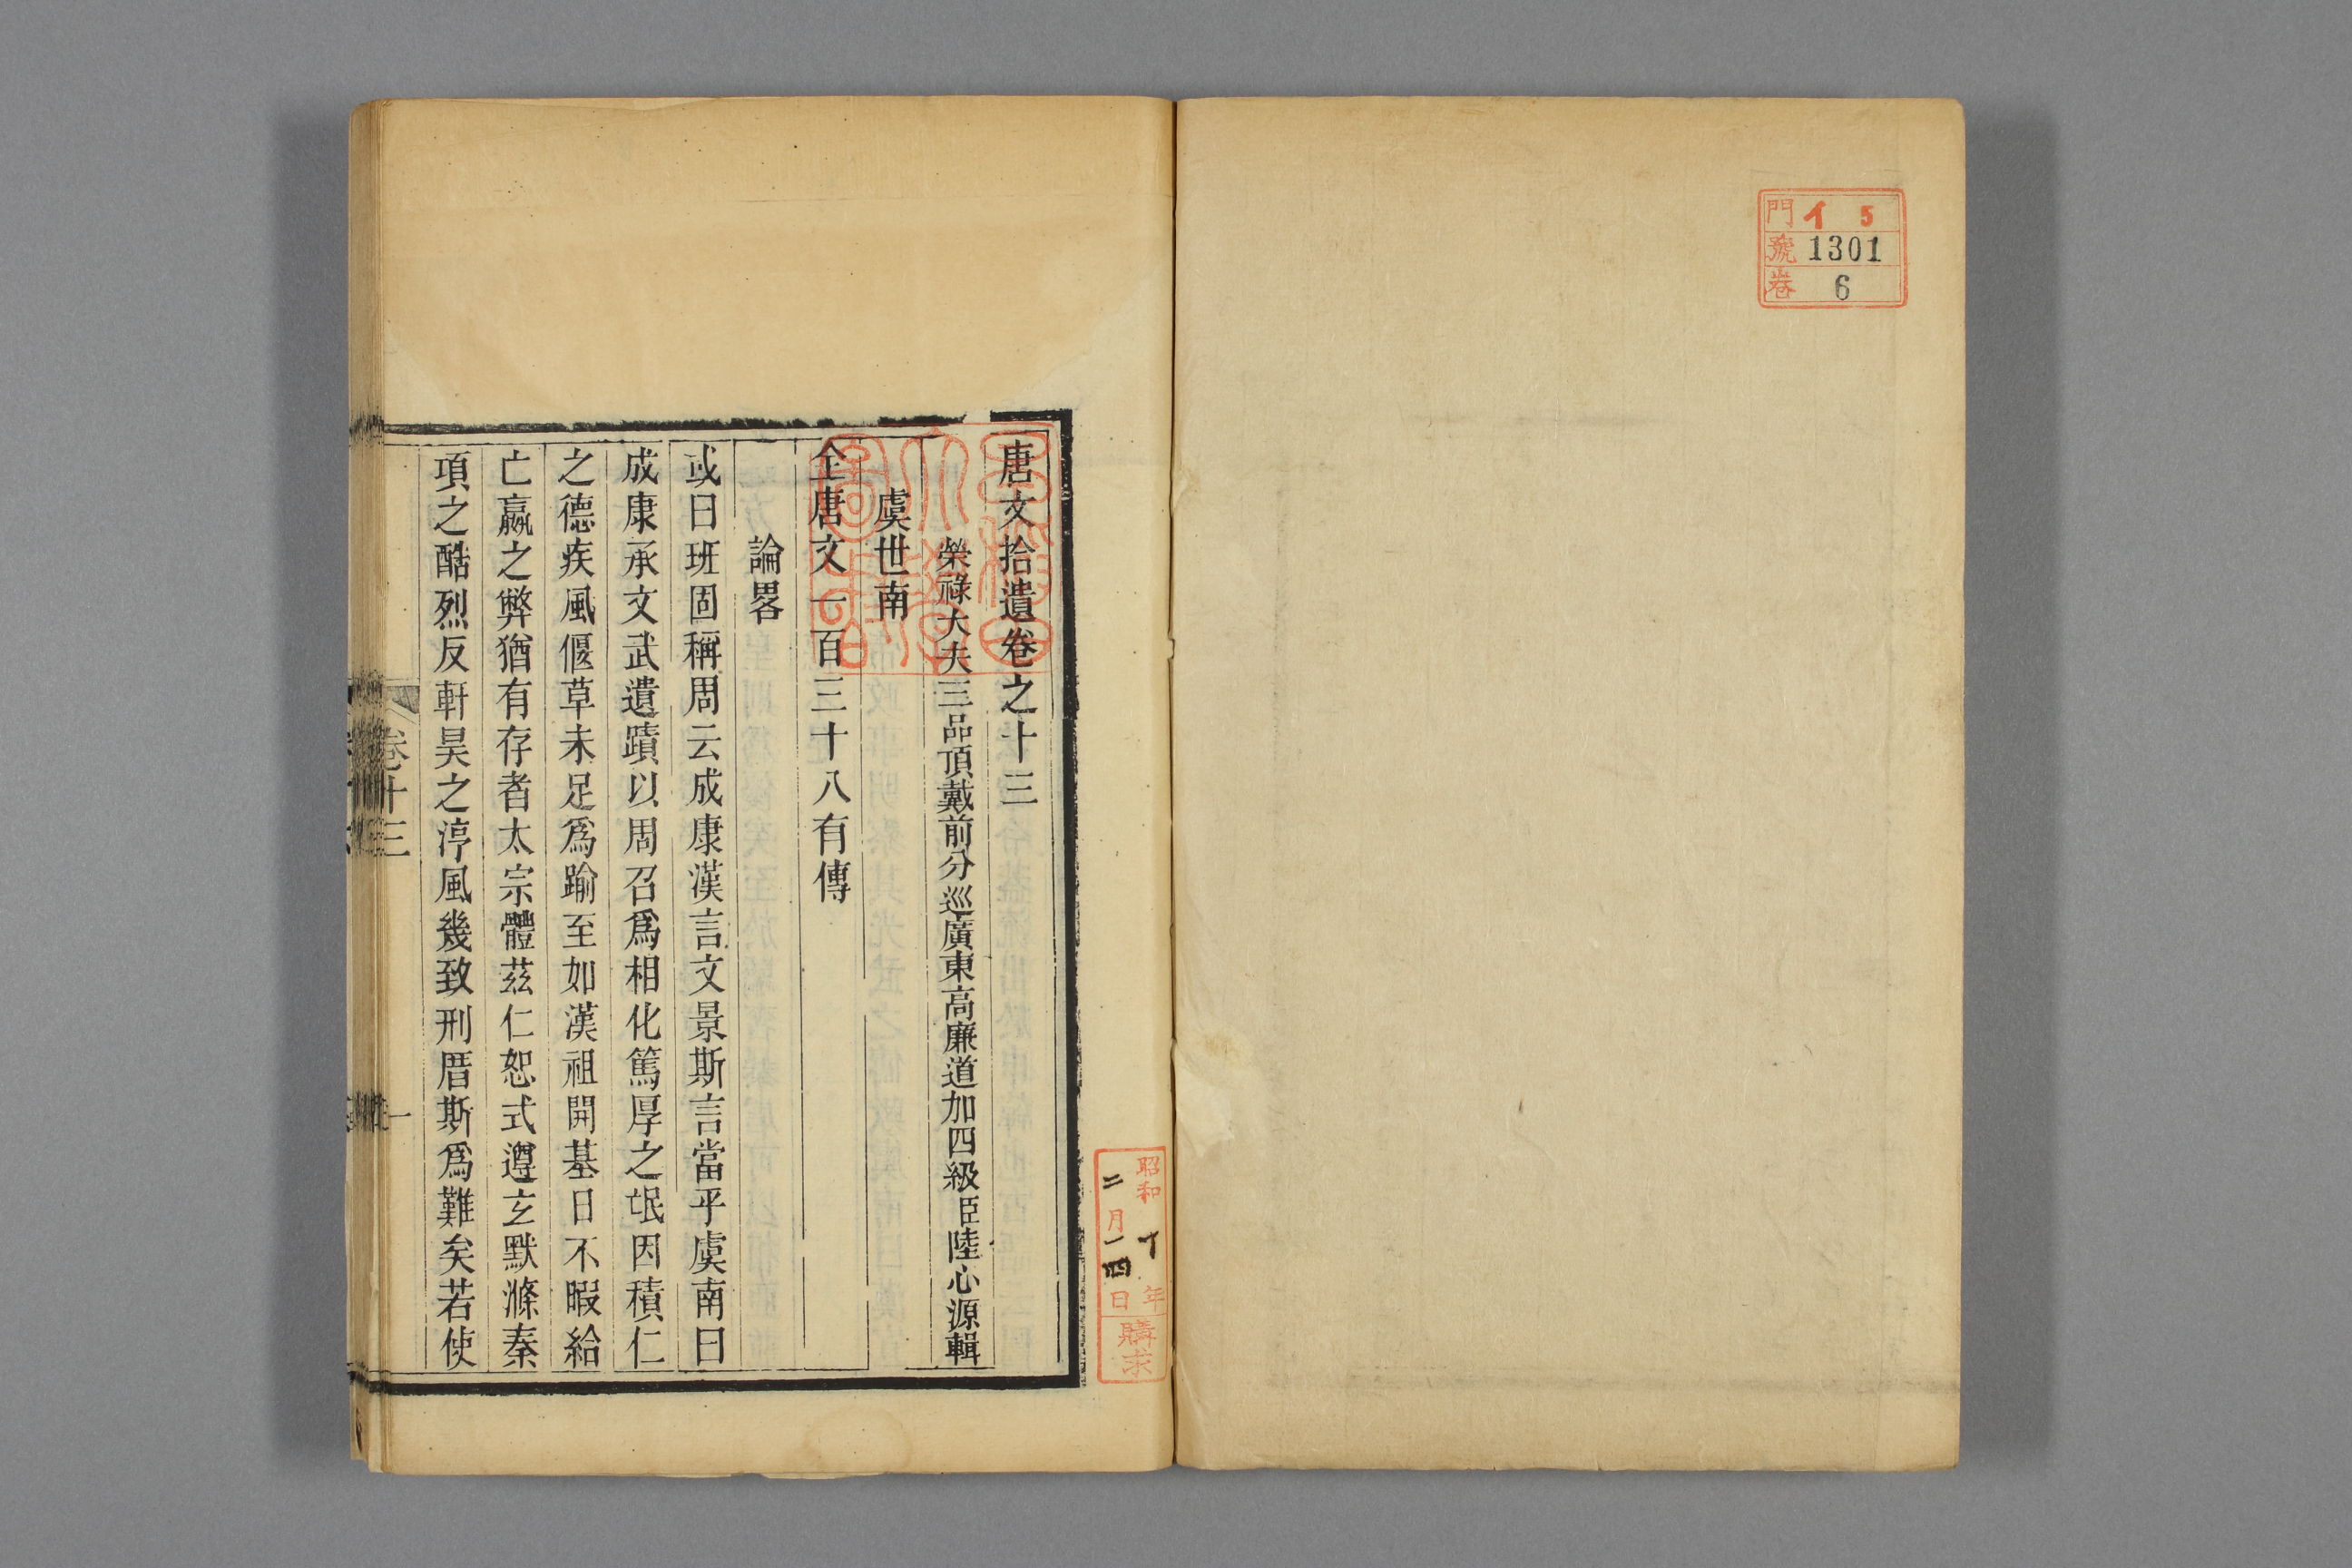 門 イ 5
號 1301
卷 6
唐文拾遺卷之十三
榮祿大夫三品頂戴前分巡廣東高廉道加四級臣陸心源輯
虞世南
全唐文一百三十八有傳
論畧
或曰班固稱周云成康漢言文景斯言當乎虞南曰
成康承文武遺蹟以周召爲相化篤厚之氓因積仁
之德疾風偃草未足爲踰至如漢祖開基日不暇給
亡嬴之弊猶有存者太宗體茲仁恕式遵玄默滌秦
項之酷烈反軒昊之淳風幾致刑厝斯爲難矣若使
卷十三
一
昭和 年
二月一四日
購求